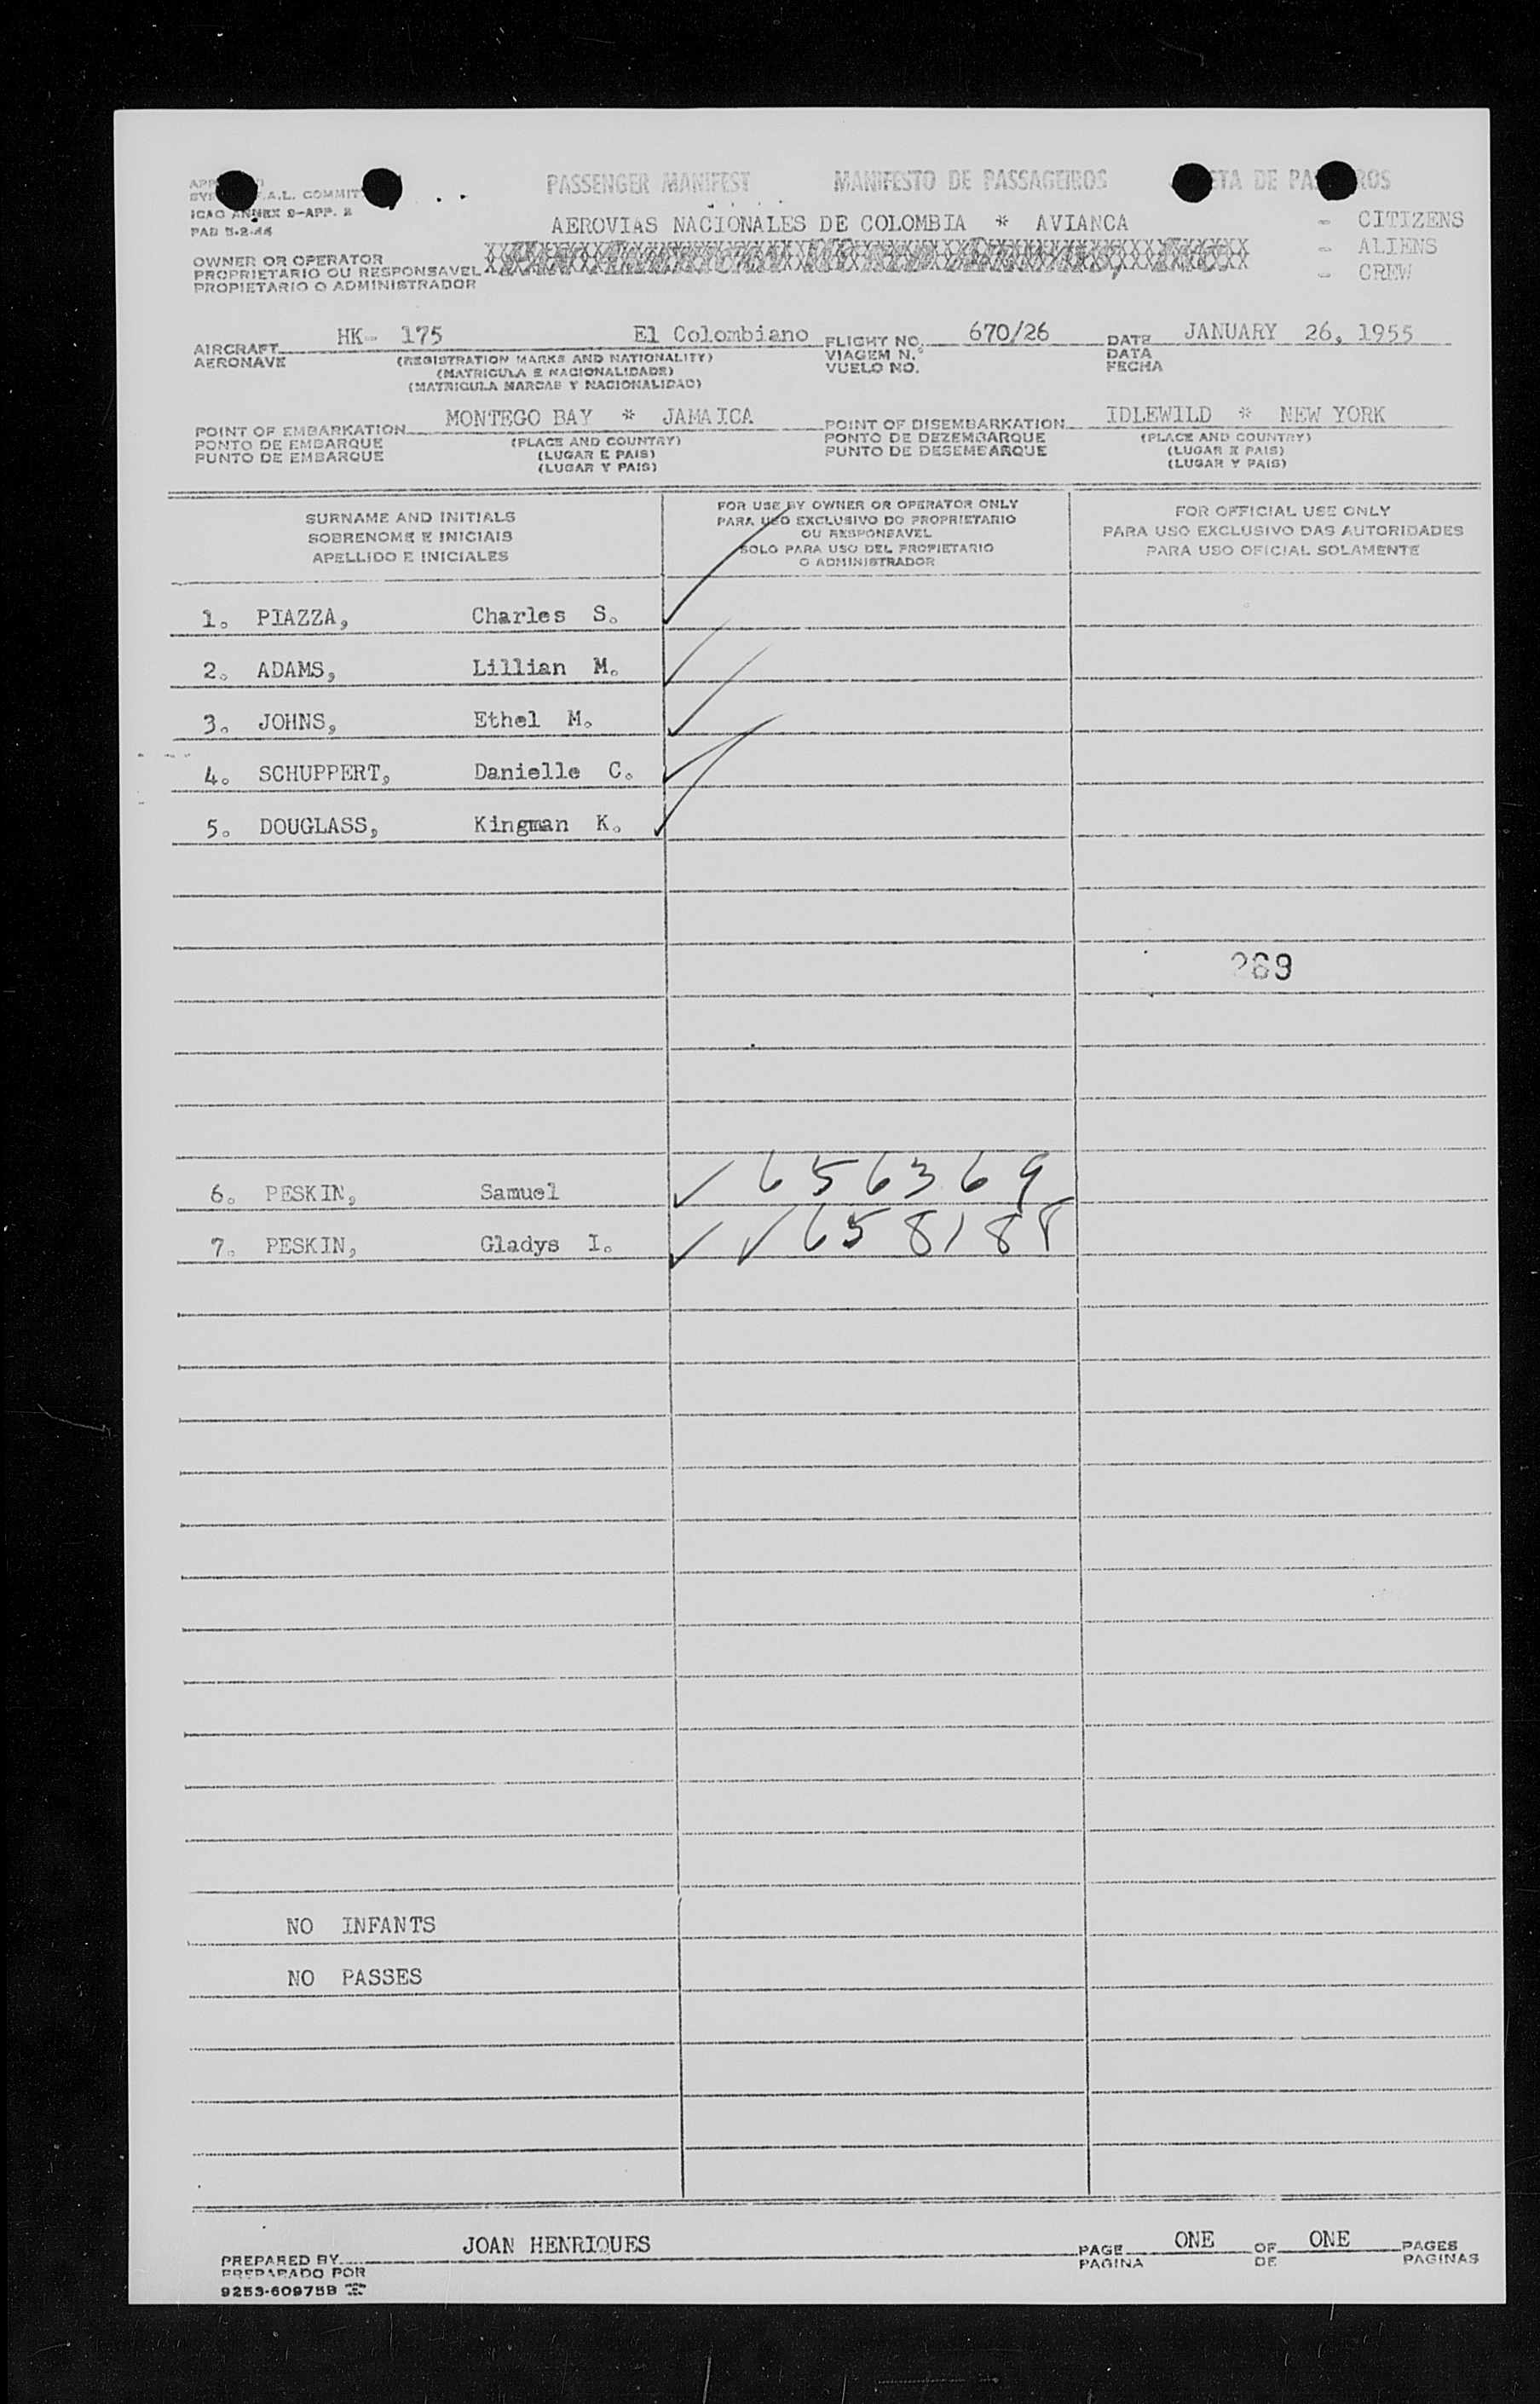 PASSENGER MANIFEST MANIFESTO DE PASSAGEIROS
A.L. COMMIT
ICAO ANNEX 9-APP. 2
AEROVIAS NACIONALES DE COLOMBIA * AVIANCA - CITIZENS
- ALIENS
- CREW
OWNER OR OPERATOR
PROPRIETARIO OU RESPONSAVEL
PROPIETARIO O ADMINISTRADOR
AIRCRAFT HK- 175 El Colombiano FLIGHT NO. 670/26 DATE JANUARY 26, 1955
AERONAVE (REGISTRATION MARKS AND NATIONALITY) VIAGEM N.° DATA
(MATRICULA E NACIONALIDADE) VUELO NO. FECHA
(MATRICULA MARCAS Y NACIONALIDAD)
POINT OF EMBARKATION MONTEGO BAY * JAMAICA POINT OF DISEMBARKATION IDLEWILD * NEW YORK
PONTO DE EMBARQUE (PLACE AND COUNTRY) PONTO DE DEZEMBARQUE (PLACE AND COUNTRY)
PUNTO DE EMBARQUE (LUGAR E PAIS) PUNTO DE DESEMBARQUE (LUGAR E PAIS)
(LUGAR Y PAIS) (LUGAR Y PAIS)
SURNAME AND INITIALS
SOBRENOME E INICIAIS
APELLIDO E INICIALES
FOR USE BY OWNER OR OPERATOR ONLY
PARA USO EXCLUSIVO DO PROPRIETARIO
OU RESPONSAVEL
SOLO PARA USO DEL PROPIETARIO
O ADMINISTRADOR
FOR OFFICIAL USE ONLY
PARA USO EXCLUSIVO DAS AUTORIDADES
PARA USO OFICIAL SOLAMENTE
1. PIAZZA, Charles S.
2. ADAMS, Lillian M.
3. JOHNS, Ethel M.
4. SCHUPPERT, Danielle C.
5. DOUGLASS, Kingman K.
269
6. PESKIN, Samuel 656369
7. PESKIN, Gladys I. 658188
NO INFANTS
NO PASSES
PREPARED BY JOAN HENRIQUES PAGE ONE OF ONE PAGES
PREPARADO POR PAGINA DE PAGINAS
9253-60975B